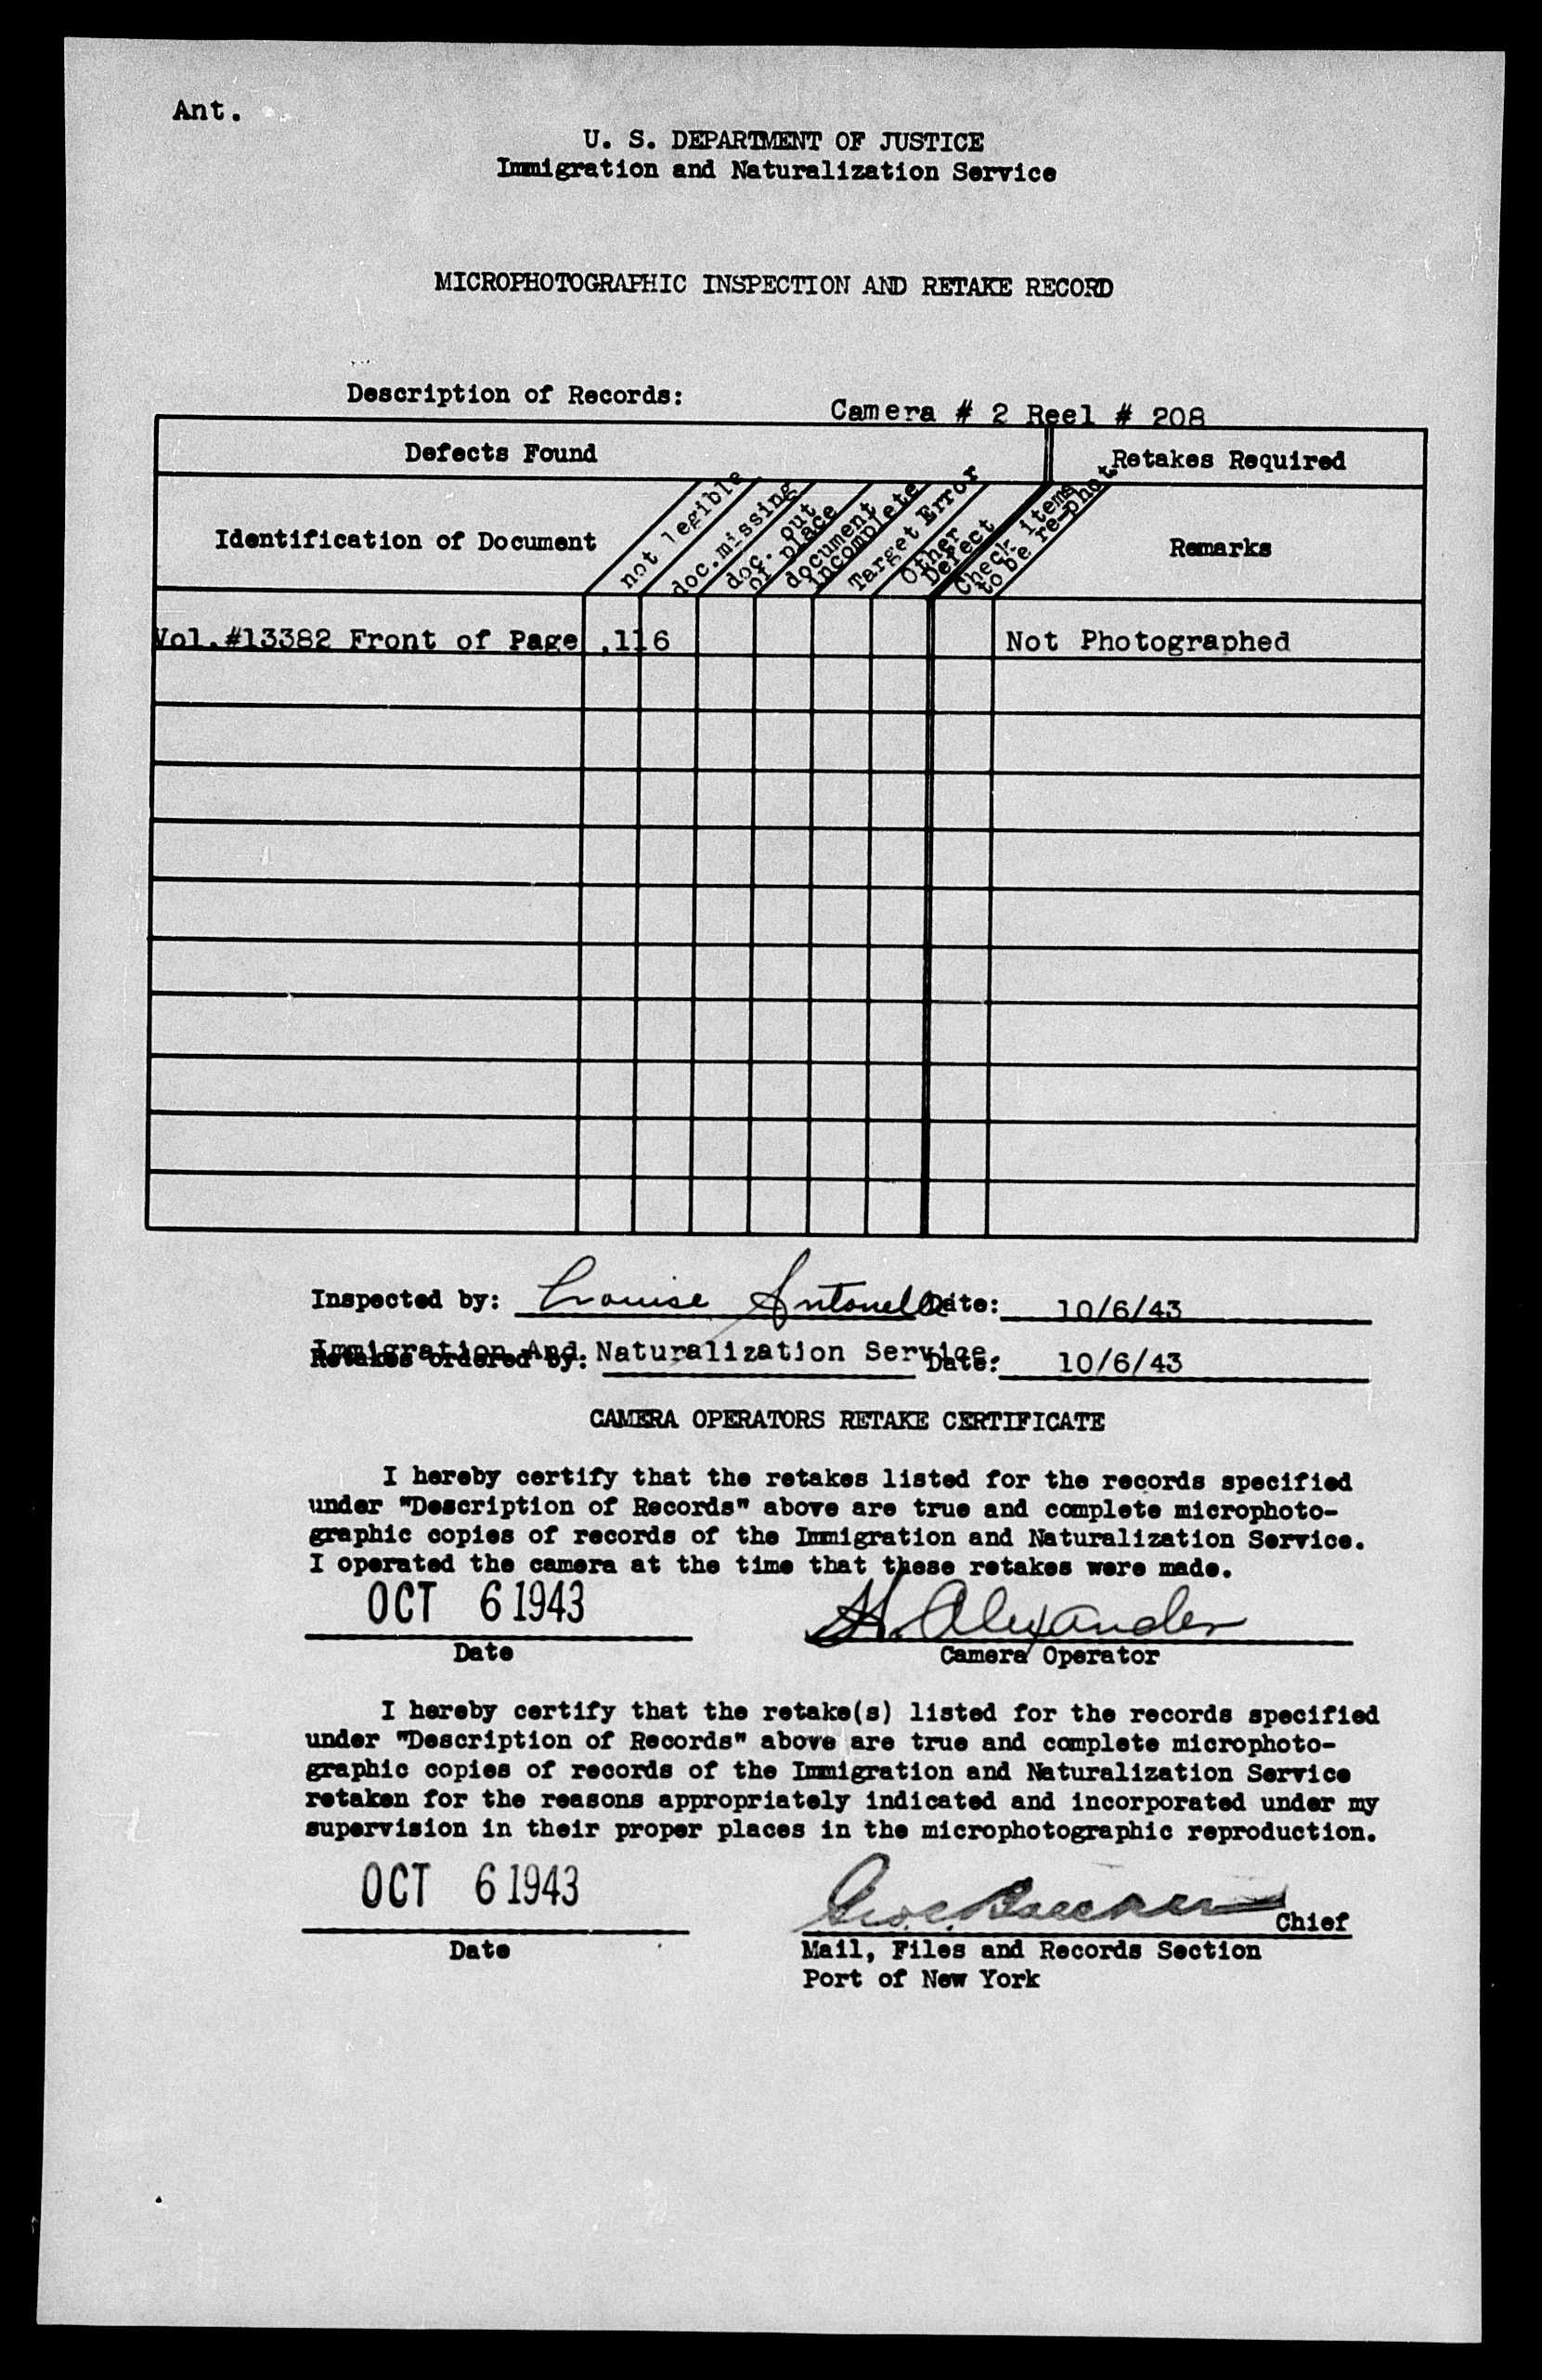 Ant.
U. S. DEPARTMENT OF JUSTICE
Immigration and Naturalization Service
MICROPHOTOGRAPHIC INSPECTION AND RETAKE RECORD
Description of Records:
Camera # 2 Reel # 208
Defects Found
Retakes Required
Identification of Document
not legible
doc.missing
doc. out
of place
document
incomplete
Target Error
Other
Defect
Check items
to be re-phot.
Remarks
Vol.#13382 Front of Page ,116
Not Photographed
Inspected by: Louise Antonelli Date: 10/6/43
Immigration And Naturalization Service.
Retakes ordered by: Date: 10/6/43
CAMERA OPERATORS RETAKE CERTIFICATE
I hereby certify that the retakes listed for the records specified
under "Description of Records" above are true and complete microphoto-
graphic copies of records of the Immigration and Naturalization Service.
I operated the camera at the time that these retakes were made.
OCT 6 1943
H. Alexander
Date
Camera Operator
I hereby certify that the retake(s) listed for the records specified
under "Description of Records" above are true and complete microphoto-
graphic copies of records of the Immigration and Naturalization Service
retaken for the reasons appropriately indicated and incorporated under my
supervision in their proper places in the microphotographic reproduction.
OCT 6 1943
Chief
Date
Mail, Files and Records Section
Port of New York